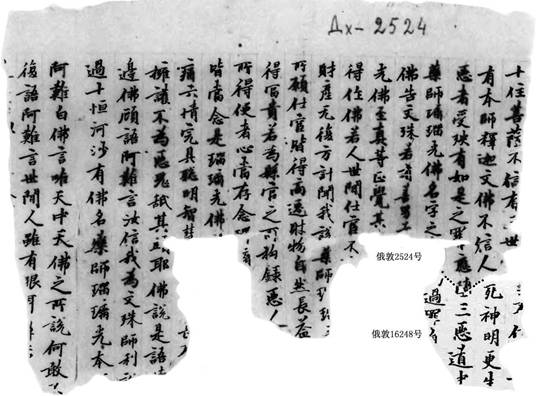 Дх-2524
十住菩薩不信有三世
有本師釋迦文佛不信人
死神明更生
惡者受殃有如是之罪應墮三惡道中
藥師瑠璃光佛名字之
過罪
佛告文殊若諸善男
光佛至真等正覺其
得作佛若人世間仕官不
財產无復方計聞我說藥師
所願仕官財得高遷財物自然長益
得富貴若為縣官之所拘錄惡人
所得便者心當存念
皆當念是瑠璃光佛
痛六情完具聰明智慧
擁護不為惡鬼舐其耶佛說是語
邊佛顧語阿難言汝信我為文殊師利
過十恒河沙有佛名藥師瑠璃光本
阿難白佛言唯天中天佛之所說何敢
復語阿難言世間人雖有眼耳
俄敦2524号
俄敦16248号